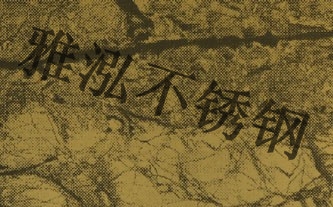 雅泓不锈钢